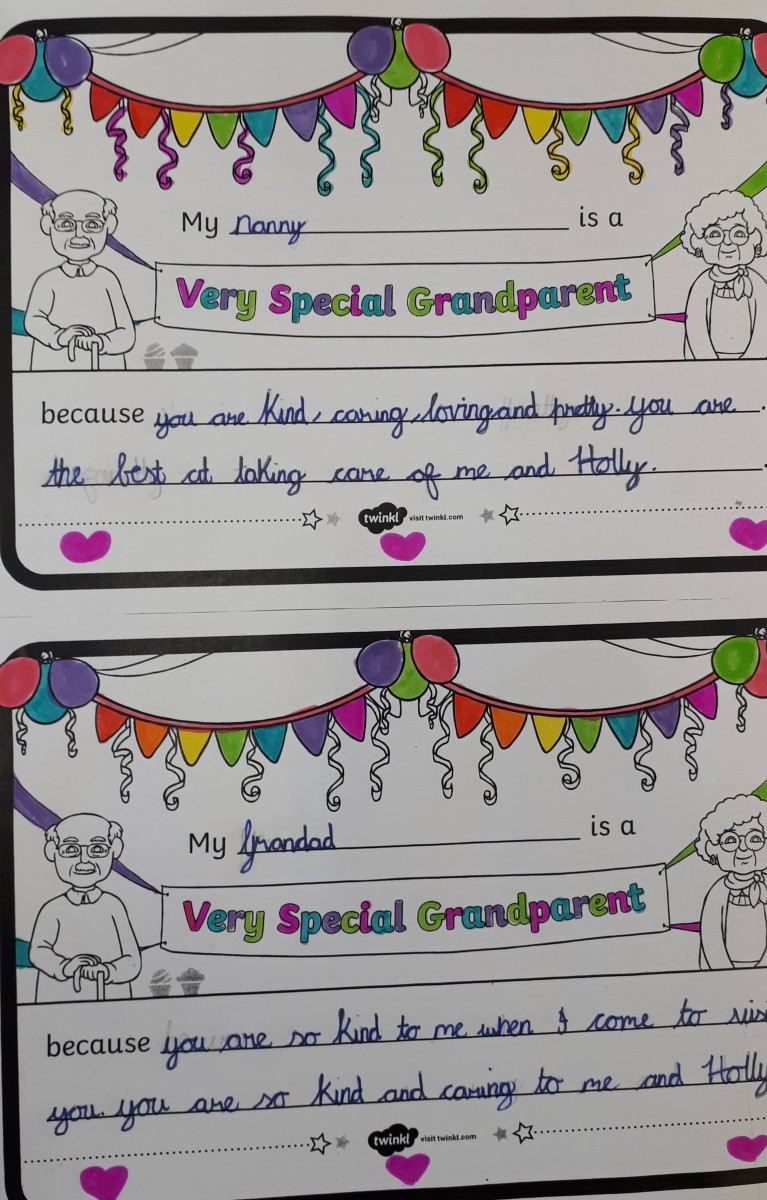 My nanny is a
Very Special Grandparent
because you are kind, caring, loving and pretty. You are
the best at taking care of me and Holly.
twinkl visit twinkl.com
My Grandad is a
Very Special Grandparent
because you are so kind to me when I come to vis
you. you are so kind and caring to me and Holly
twinkl visit twinkl.com